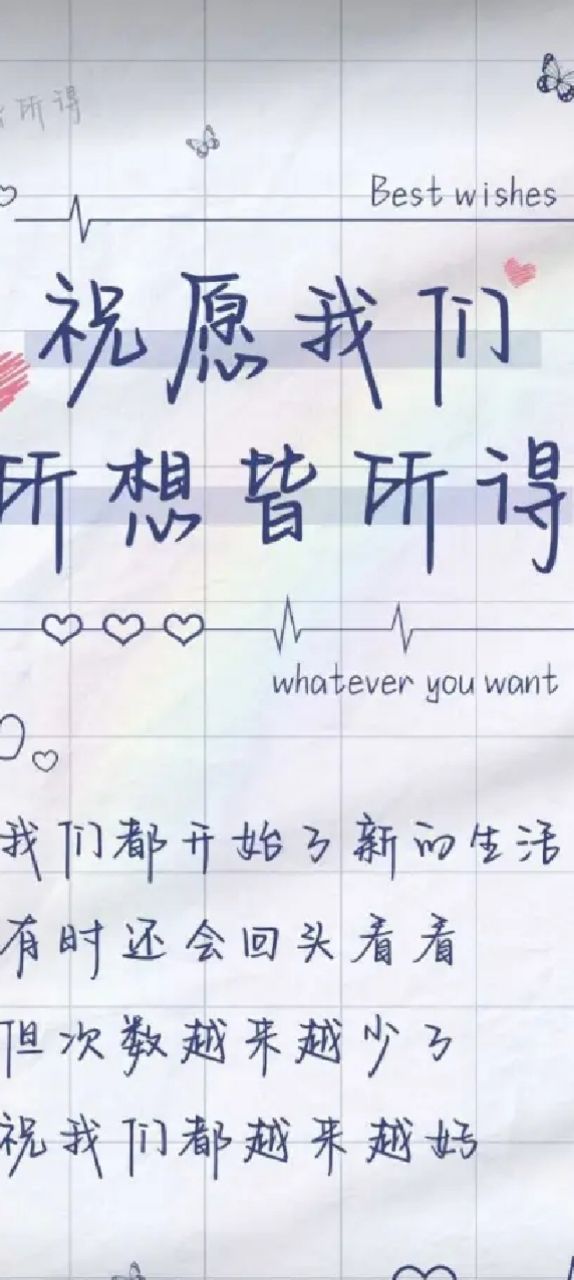 所得
Best wishes
祝愿我们
所想皆所得
whatever you want
我们都开始了新的生活
有时还会回头看看
但次数越来越少了
祝我们都越来越好